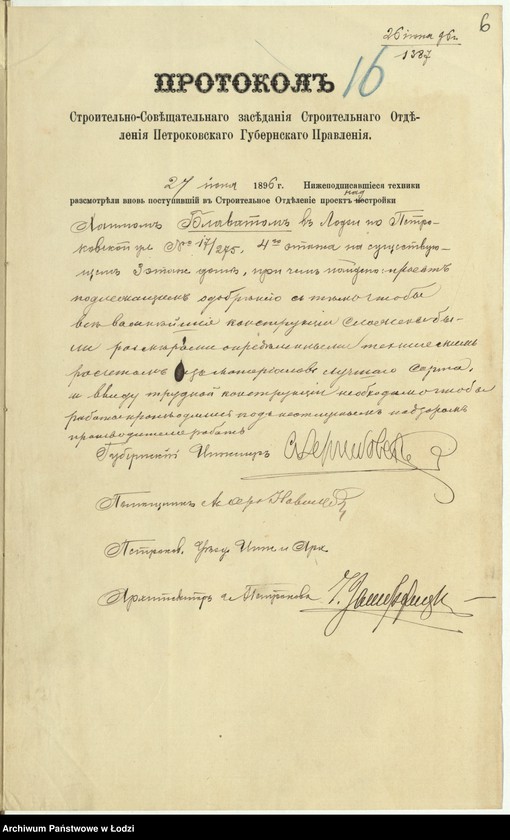 6
26 июня 96 г.
1387
16
ПРОТОКОЛЪ
Строительно-Совѣщательнаго засѣданія Строительнаго Отдѣ-
ленія Петроковскаго Губернскаго Правленія.
27 июня 1896 г. Нижеподписавшіеся техники
над
разсмотрѣли вновь поступившій въ Строительное Отдѣленіе проектъ постройки
Хаимомъ Блаватомъ въ Лодзи по Петро-
ковской ул № 17/275, 4го этажа на существую-
щемъ 3 этаж. домѣ, при чемъ найдено: проектъ
подлежащимъ одобренію съ тѣмъ чтобы
всѣ важнѣйшія конструкціи сложены бы-
ли размѣрами опредѣленными техническимъ
разсчетомъ изъ матеріалов лучшаго сорта,
и ввиду трудной конструкціи необходимо чтобы
работы производились подъ надзоромъ
производителя работъ
Губернскій Инженеръ
Помощникъ
Петроков. Уѣзд. Инж. и Арх.
Архитекторъ г. Петрокова
Archiwum Państwowe w Łodzi